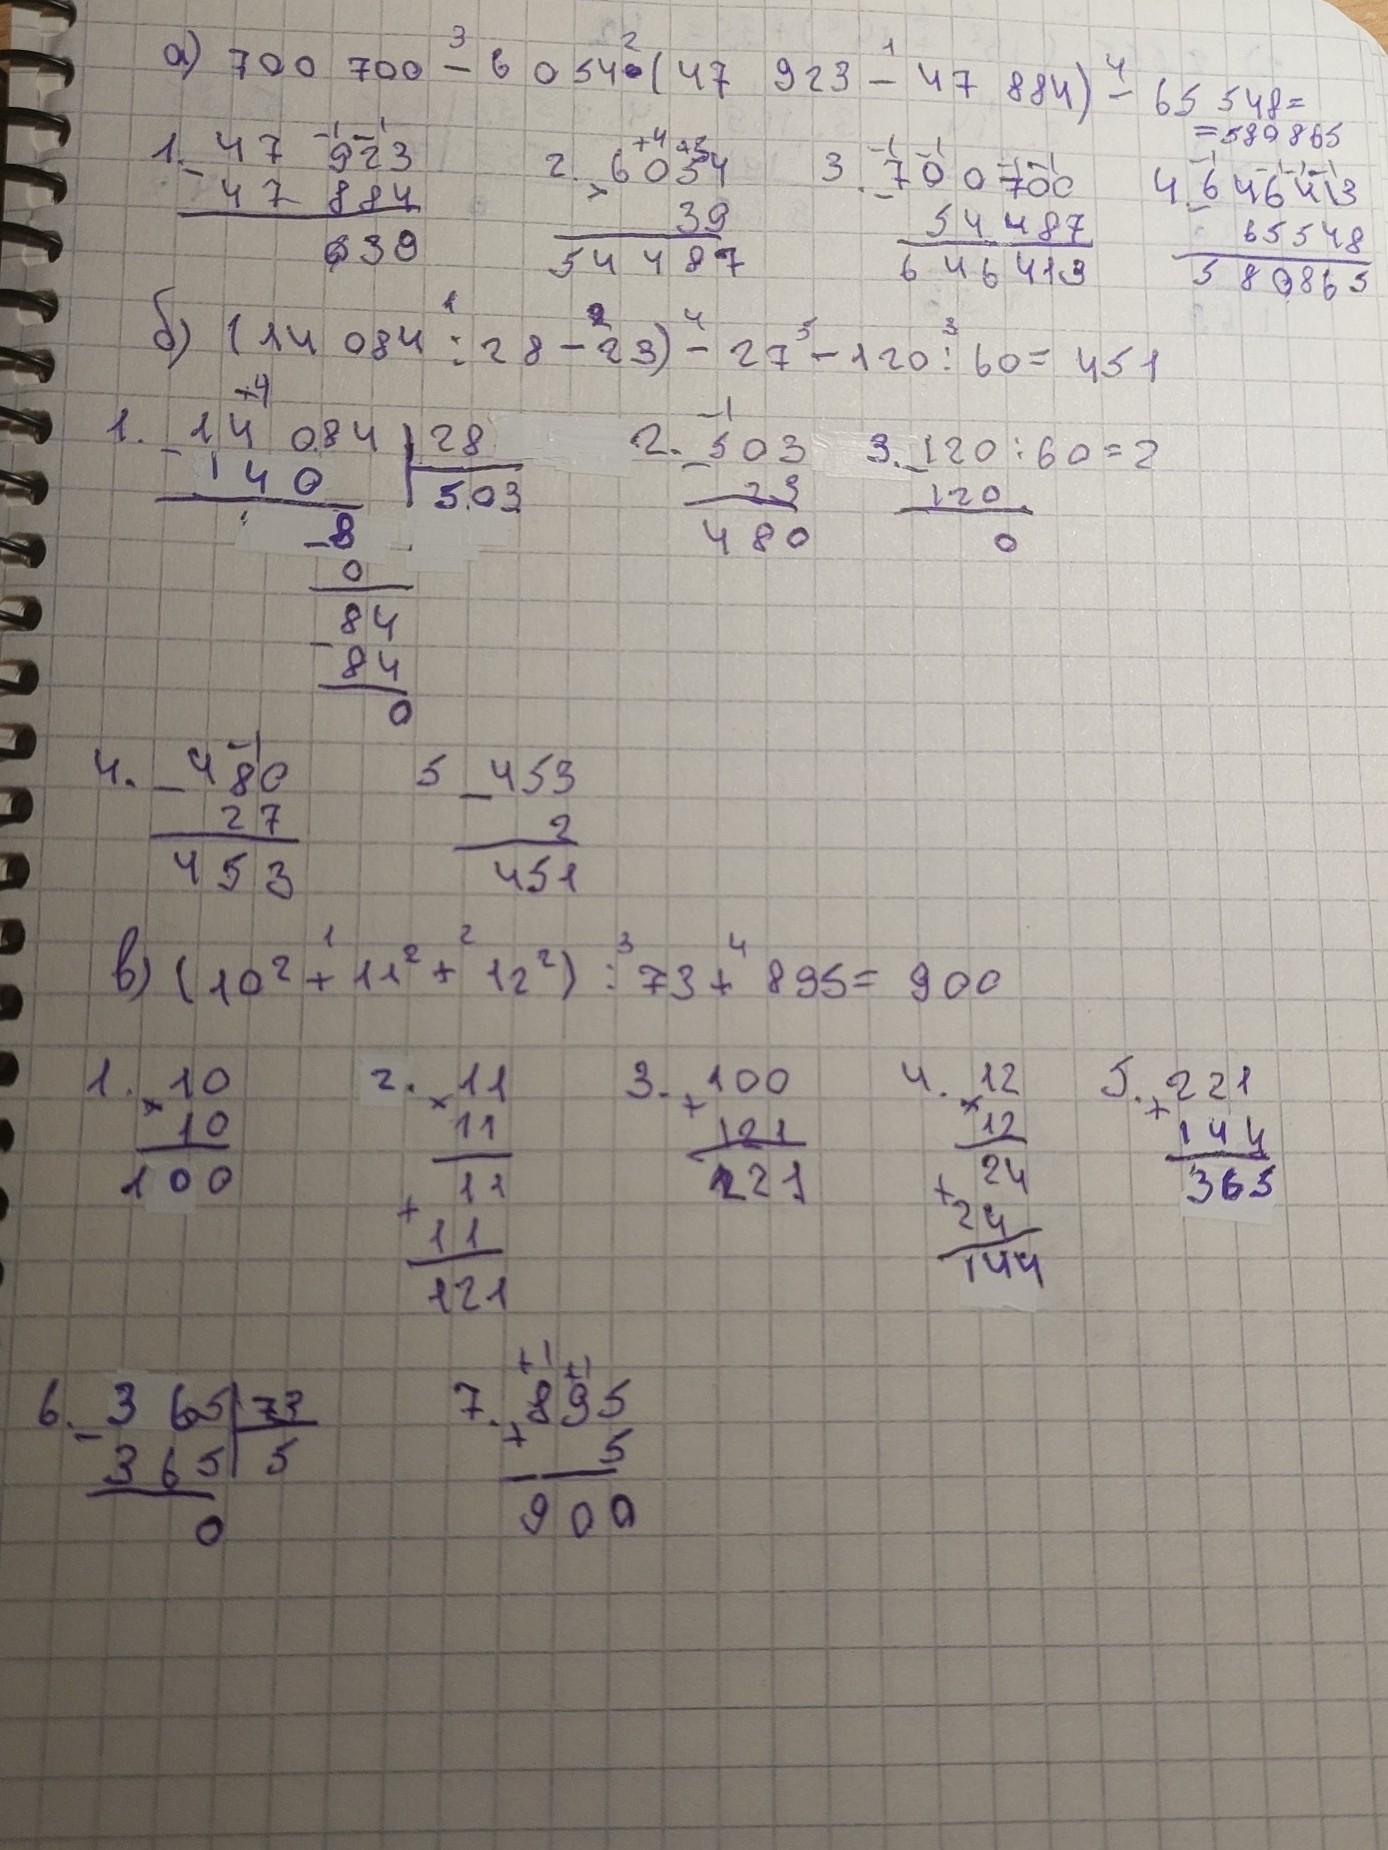 а) 700 700 - 6054·(47 923 - 47 884) - 65 548=
3 2 1 4
=580865
1. 47 923
- 47 884
39
2. 6054
× 39
54 487
3. 700 700
- 54 487
646 413
4. 646413
- 65548
580865
б) (14 084 : 28 - 23) - 27 - 120 : 60 = 451
1 2 4 5 3
1. 14 084 | 28
- 140 503
- 8
0
84
- 84
0
2. 503
- 23
480
3. 120 : 60 = 2
- 120
0
4. 480
- 27
453
5 453
- 2
451
в) (10² + 11² + 12²) : 73 + 895 = 900
1 2 3 4
1. 10
× 10
100
2. 11
× 11
11
+ 11
121
3. 100
+ 121
221
4. 12
× 12
24
+ 24
144
5. 221
+ 144
365
6. 365 | 73
- 365 5
0
7. 895
+ 5
900